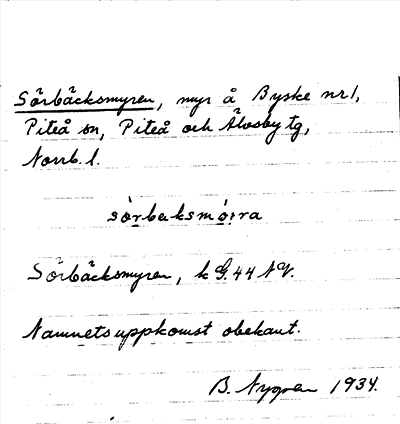 Sörbäcksmyren, myr å Byske nr 1,
Piteå sn, Piteå och Älvsby tg,
Norrb. l.
sörbeksmöira
Sörbäcksmyren, k G. 44 NV.
Namnets uppkomst obekant.
B. Nygren 1934.